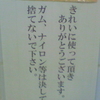 きれいに使って頂き
ありがとうございます。
ガム、ナイロン等は決して
捨てないで下さい。